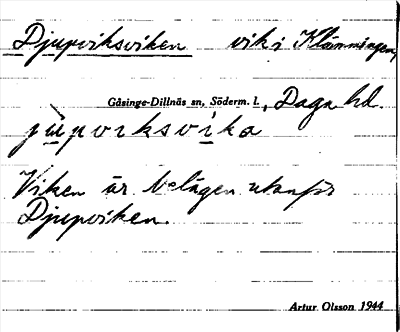 Djupviksviken vik i Klämmingen,
Gåsinge-Dillnäs sn, Söderm. l., Daga hd.
jùpviksvika
Viken är belägen utanför
Djupviken.
Artur Olsson 1944